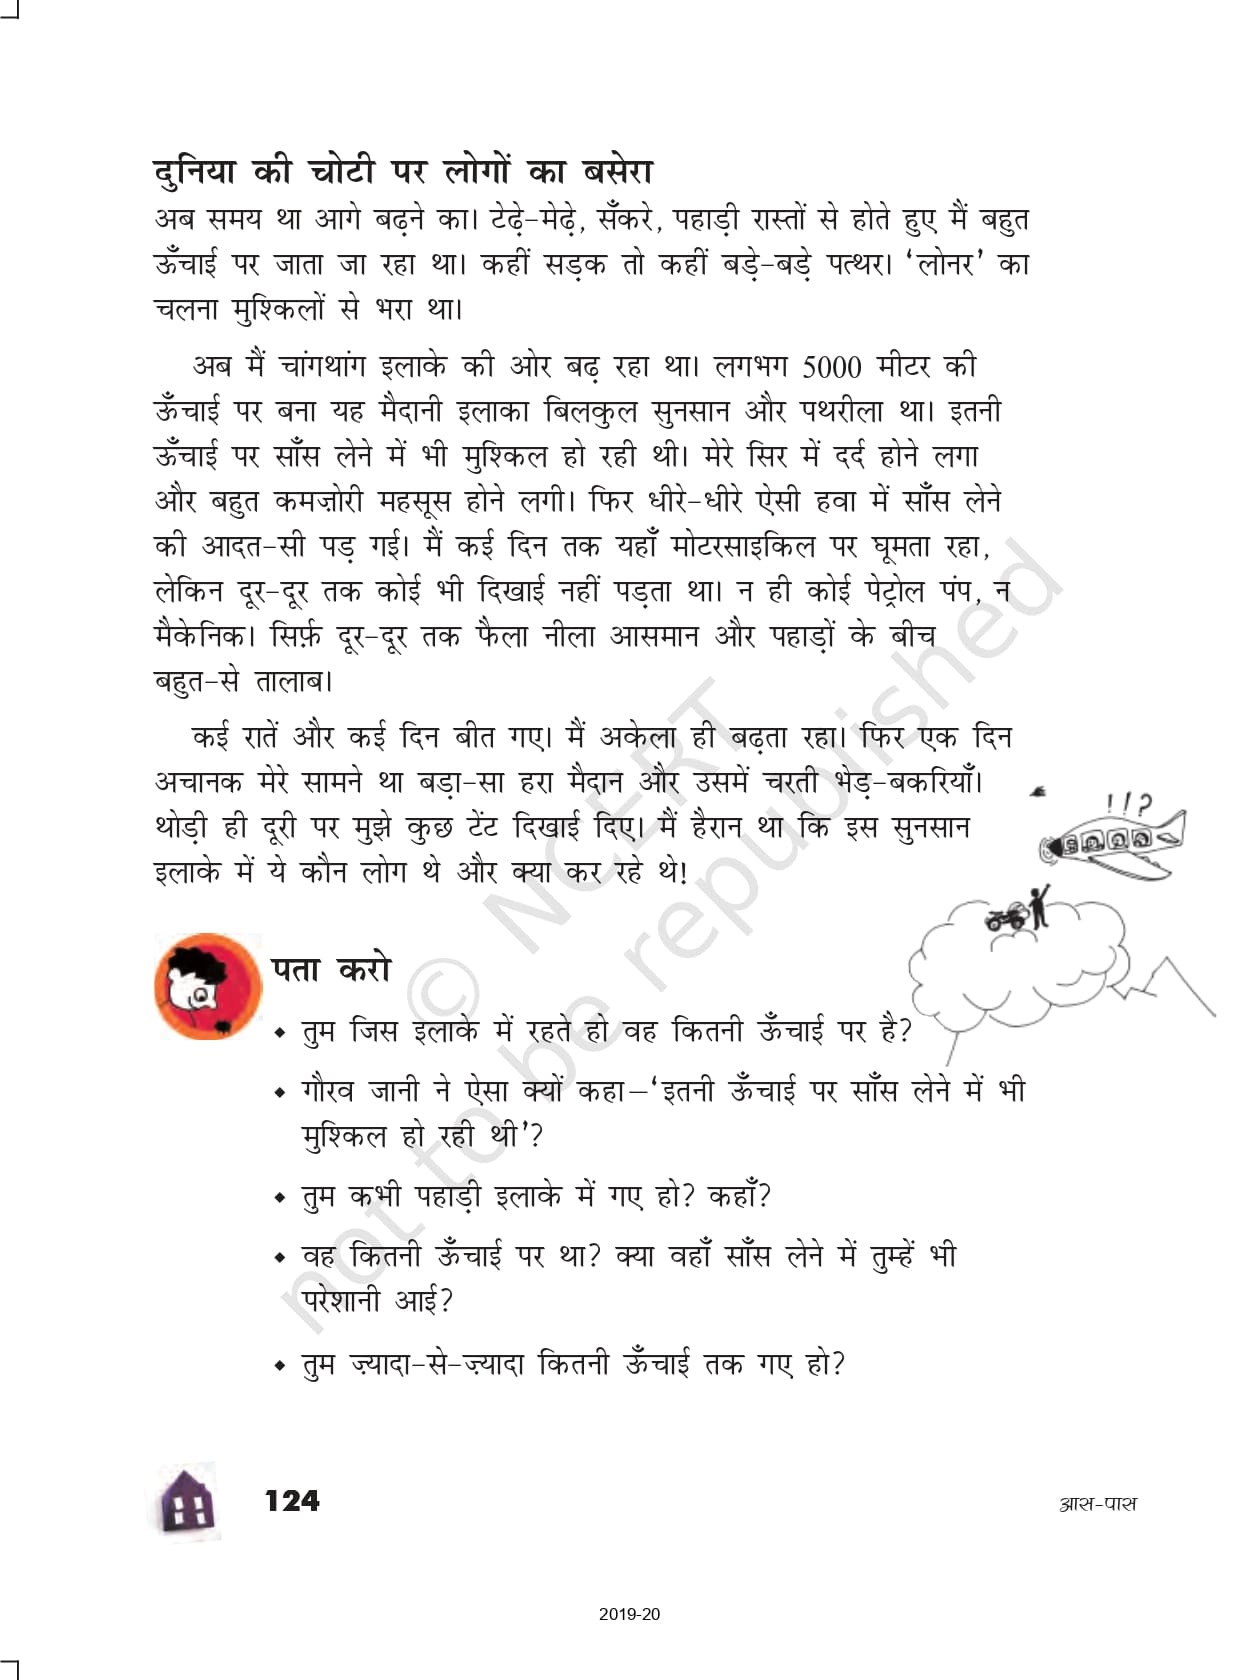 दुनिया की चोटी पर लोगों का बसेरा
अब समय था आगे बढ़ने का। टेढ़े-मेढ़े, सँकरे, पहाड़ी रास्तों से होते हुए मैं बहुत
ऊँचाई पर जाता जा रहा था। कहीं सड़क तो कहीं बड़े-बड़े पत्थर। ‘लोनर’ का
चलना मुश्किलों से भरा था।
अब मैं चांगथांग इलाके की ओर बढ़ रहा था। लगभग 5000 मीटर की
ऊँचाई पर बना यह मैदानी इलाका बिलकुल सुनसान और पथरीला था। इतनी
ऊँचाई पर साँस लेने में भी मुश्किल हो रही थी। मेरे सिर में दर्द होने लगा
और बहुत कमज़ोरी महसूस होने लगी। फिर धीरे-धीरे ऐसी हवा में साँस लेने
की आदत-सी पड़ गई। मैं कई दिन तक यहाँ मोटरसाइकिल पर घूमता रहा,
लेकिन दूर-दूर तक कोई भी दिखाई नहीं पड़ता था। न ही कोई पेट्रोल पंप, न
मैकेनिक। सिर्फ़ दूर-दूर तक फैला नीला आसमान और पहाड़ों के बीच
बहुत-से तालाब।
कई रातें और कई दिन बीत गए। मैं अकेला ही बढ़ता रहा। फिर एक दिन
अचानक मेरे सामने था बड़ा-सा हरा मैदान और उसमें चरती भेड़-बकरियाँ।
थोड़ी ही दूरी पर मुझे कुछ टेंट दिखाई दिए। मैं हैरान था कि इस सुनसान
इलाके में ये कौन लोग थे और क्या कर रहे थे!
!!?
पता करो
◆ तुम जिस इलाके में रहते हो वह कितनी ऊँचाई पर है?
◆ गौरव जानी ने ऐसा क्यों कहा–‘इतनी ऊँचाई पर साँस लेने में भी
मुश्किल हो रही थी’?
◆ तुम कभी पहाड़ी इलाके में गए हो? कहाँ?
◆ वह कितनी ऊँचाई पर था? क्या वहाँ साँस लेने में तुम्हें भी
परेशानी आई?
◆ तुम ज़्यादा-से-ज़्यादा कितनी ऊँचाई तक गए हो?
© NCERT
not to be republished
124
आस-पास
2019-20